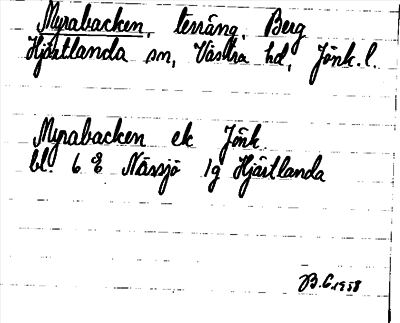 Myrabacken, terräng, Berg
Hjärtlanda sn, Västra hd, Jönk. l.
Myrabacken ek Jönk
bl. 6 E Nässjö 1g Hjärtlanda
B.G. 1958